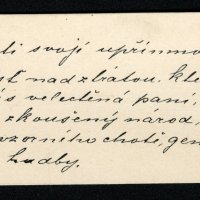 ti svojí upřímno
sť nad ztrátou, kte
s velectěná paní,
zkoušený národ,
vzorného choti, gen
hudby.